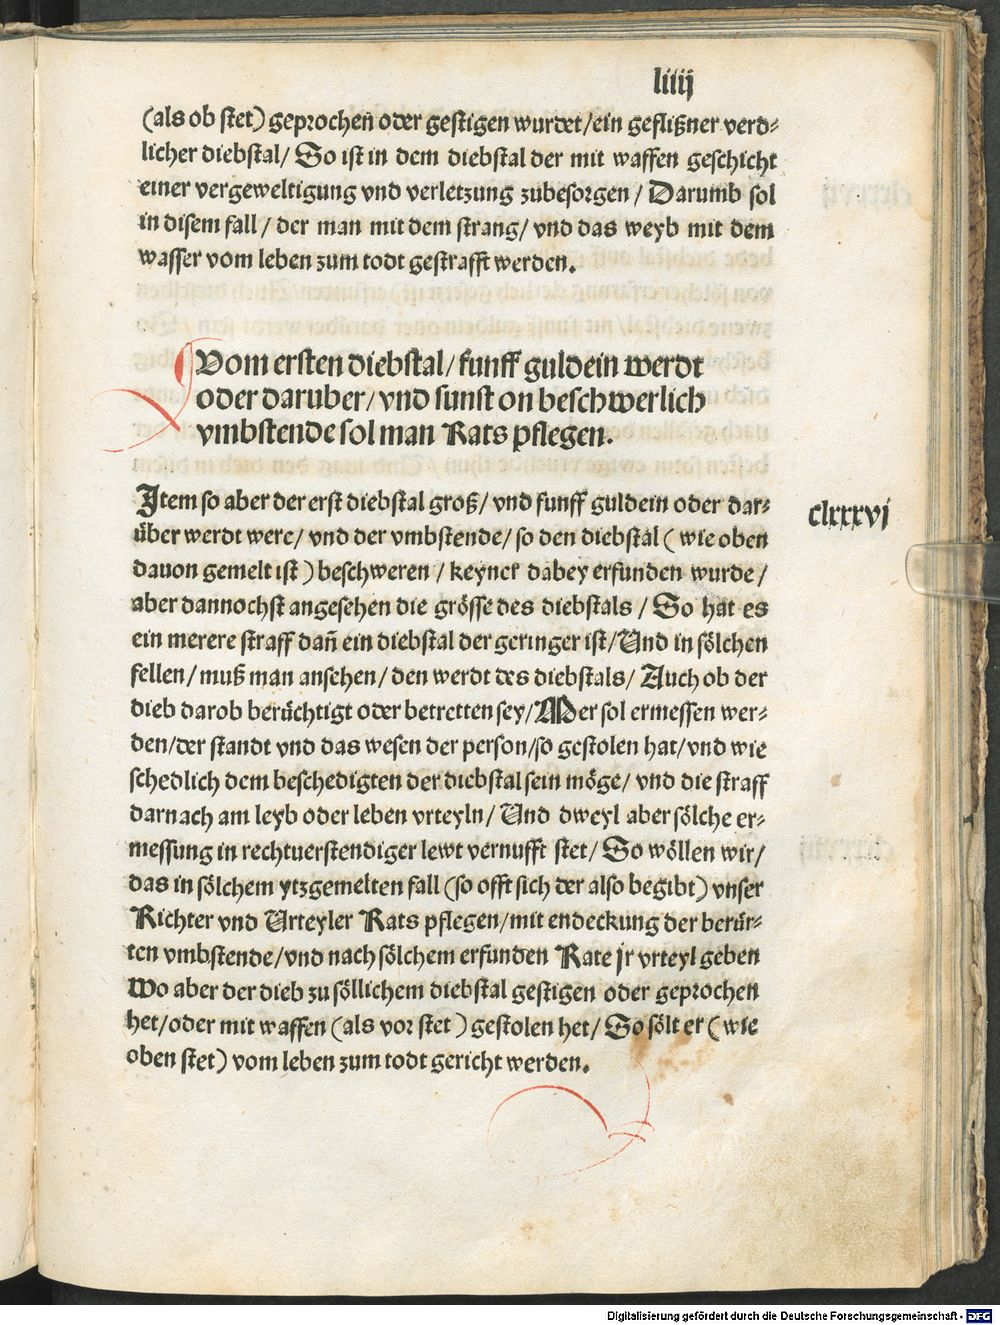 liiij
(als ob stet) geprochen oder gestigen wurdet/ein geflißner verd⸗
licher diebstal/ So ist in dem diebstal der mit waffen geschicht
einer vergeweltigung vnd verletzung zubesorgen/ Darumb sol
in disem fall/ der man mit dem strang/ vnd das weyb mit dem
wasser vom leben zum todt gestrafft werden.
Vom ersten diebstal/ funff guldein werdt
oder daruber/ vnd sunst on beschwerlich
vmbstende sol man Rats pflegen.
Item so aber der erst diebstal groß/ vnd funff guldein oder dar⸗
über werdt were/ vnd der vmbstende/ so den diebstal (wie oben
dauon gemelt ist) beschweren/ keyner dabey erfunden wurde/
aber dannochst angesehen die grösse des diebstals/ So hat es
ein merere straff dan̄ ein diebstal der geringer ist/ Und in sölchen
fellen/ muß man ansehen/ den werdt des diebstals/ Auch ob der
dieb darob berüchtigt oder betretten sey/ Mer sol ermessen wer⸗
den/der standt vnd das wesen der person/so gestolen hat/vnd wie
schedlich dem beschedigten der diebstal sein möge/ vnd die straff
darnach am leyb oder leben vrteyln/ Und dweyl aber sölche er⸗
messung in rechtuerstendiger lewt vernufft stet/ So wöllen wir/
das in sölchem ytzgemelten fall (so offt sich der also begibt) vnser
Richter vnd Urteyler Rats pflegen/mit endeckung der berür⸗
ten vmbstende/vnd nach sölchem erfunden Rate jr vrteyl geben
Wo aber der dieb zu söllichem diebstal gestigen oder geprochen
het/oder mit waffen (als vor stet) gestolen het/ So sölt er (wie
oben stet) vom leben zum todt gericht werden.
clxxxvj
Digitalisierung gefördert durch die Deutsche Forschungsgemeinschaft - DFG